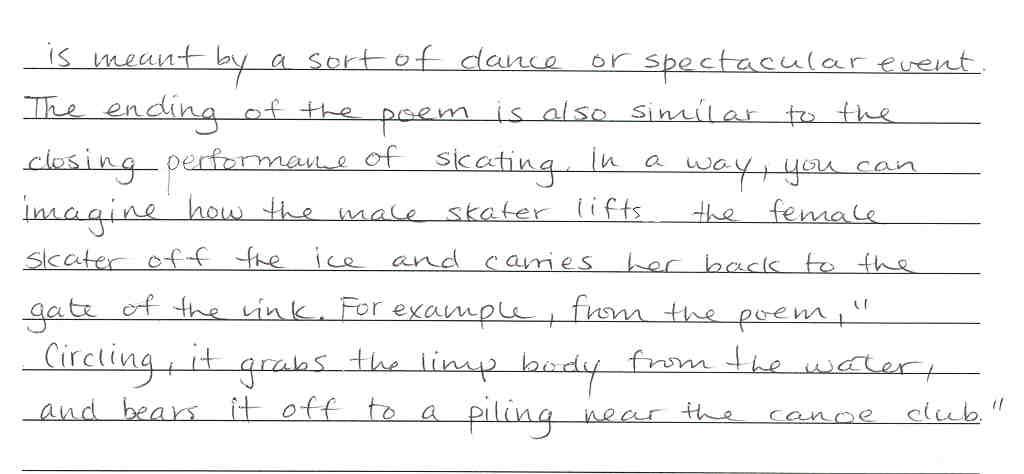 is meant by a sort of dance or spectacular event.
The ending of the poem is also similar to the
closing performance of skating. In a way, you can
imagine how the male skater lifts the female
skater off the ice and carries her back to the
gate of the rink. For example, from the poem, "
Circling, it grabs the limp body from the water,
and bears it off to a piling near the canoe club."